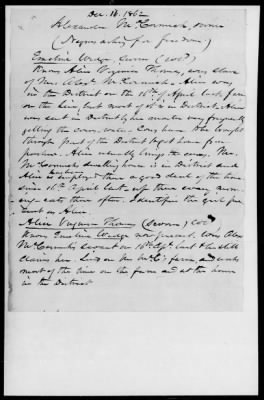 Dec. 16. 1862
Alexander McCormick, owner
(Negroes asking for freedom)
Emeline Wedge, sworn (cold)
Know Alice Virginia Thomas, was slave
of Mrs. Alex. McCormick. Alice was
in the District on the 16th of April last, farm
on the line, but most of it in District. Alice
was sent in District, her quarter very frequently
getting the cows, water. Cows have to be brought
through part of the District to get home from
pasture. Alice usually brings the cows. Mr.
McCormick's dwelling house is in District and
Alice has been employed there a good deal of the time
since 16th April last, up there every morn-
ing, eats there often. I identify the girl pre-
sent as Alice.
Alice Virginia Thomas (sworn) cold
Know Emeline Wedge now present. Was Alex
McCormick's servant on 16th Apl. last & he still
claims her. Lives on Mr. McC's farm, and works
most of the time on the farm and at the house
in the District